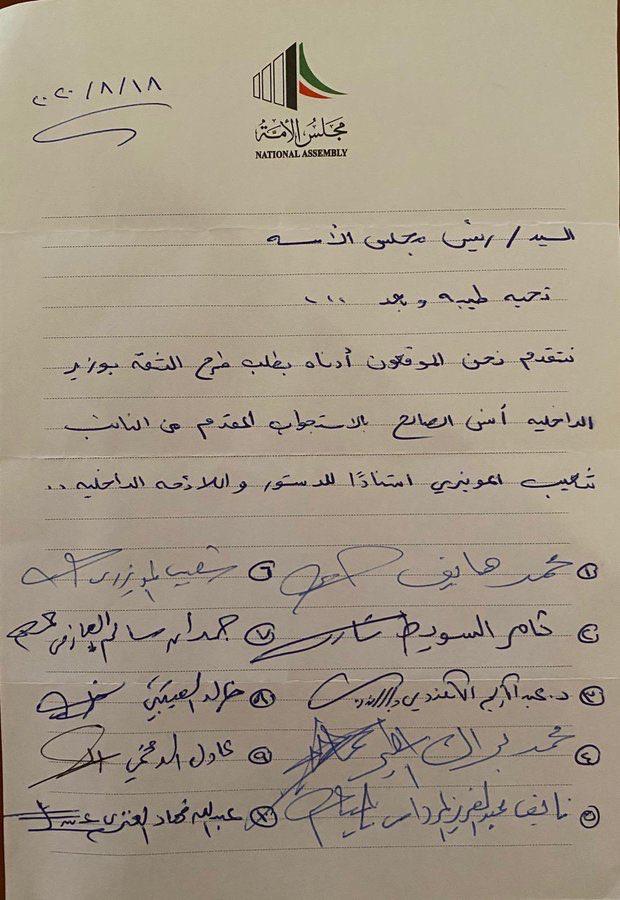 ٢٠٢٠/٨/١٨
مجلس الأمة
NATIONAL ASSEMBLY
السيد / رئيس مجلس الأمه
تحيه طيبه وبعد ...
نتقدم نحن الموقعون أدناه بطلب طرح الثقة بوزير
الداخليه أنس الصالح بالاستجواب المقدم من النائب
شعيب المويزري استنادًا للدستور واللائحه الداخليه ..
١ محمد هايف
٦ شعيب المويزري
٢ ثامر السويط
٧ حمدان سالم العازمي
٣ د. عبدالكريم الكندري
٨ خالد العتيبي
٤ محمد براك المطير
٩ عادل الدمخي
٥ نايف عبدالعزيز المرداس
١٠ عبدالله فهاد العنزي